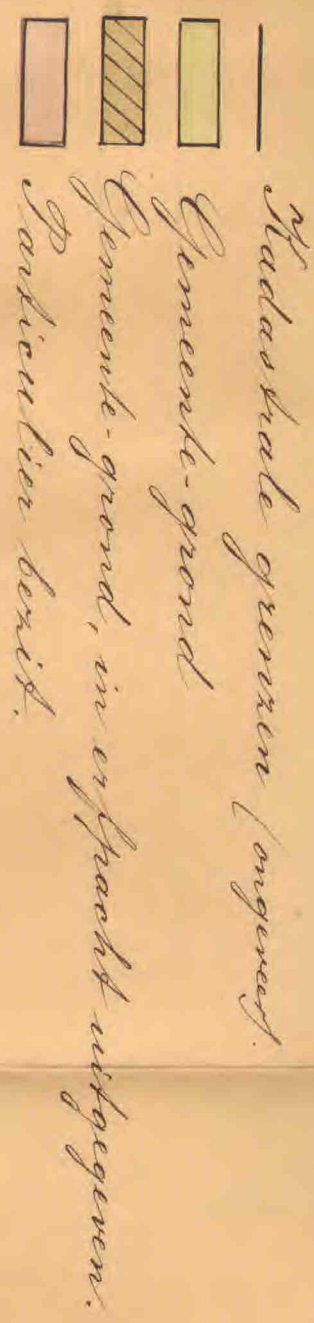 Kadastrale grenzen (ongeveer).
Gemeente-grond
Gemeente-grond, in erfpacht uitgegeven.
Particulier bezit.